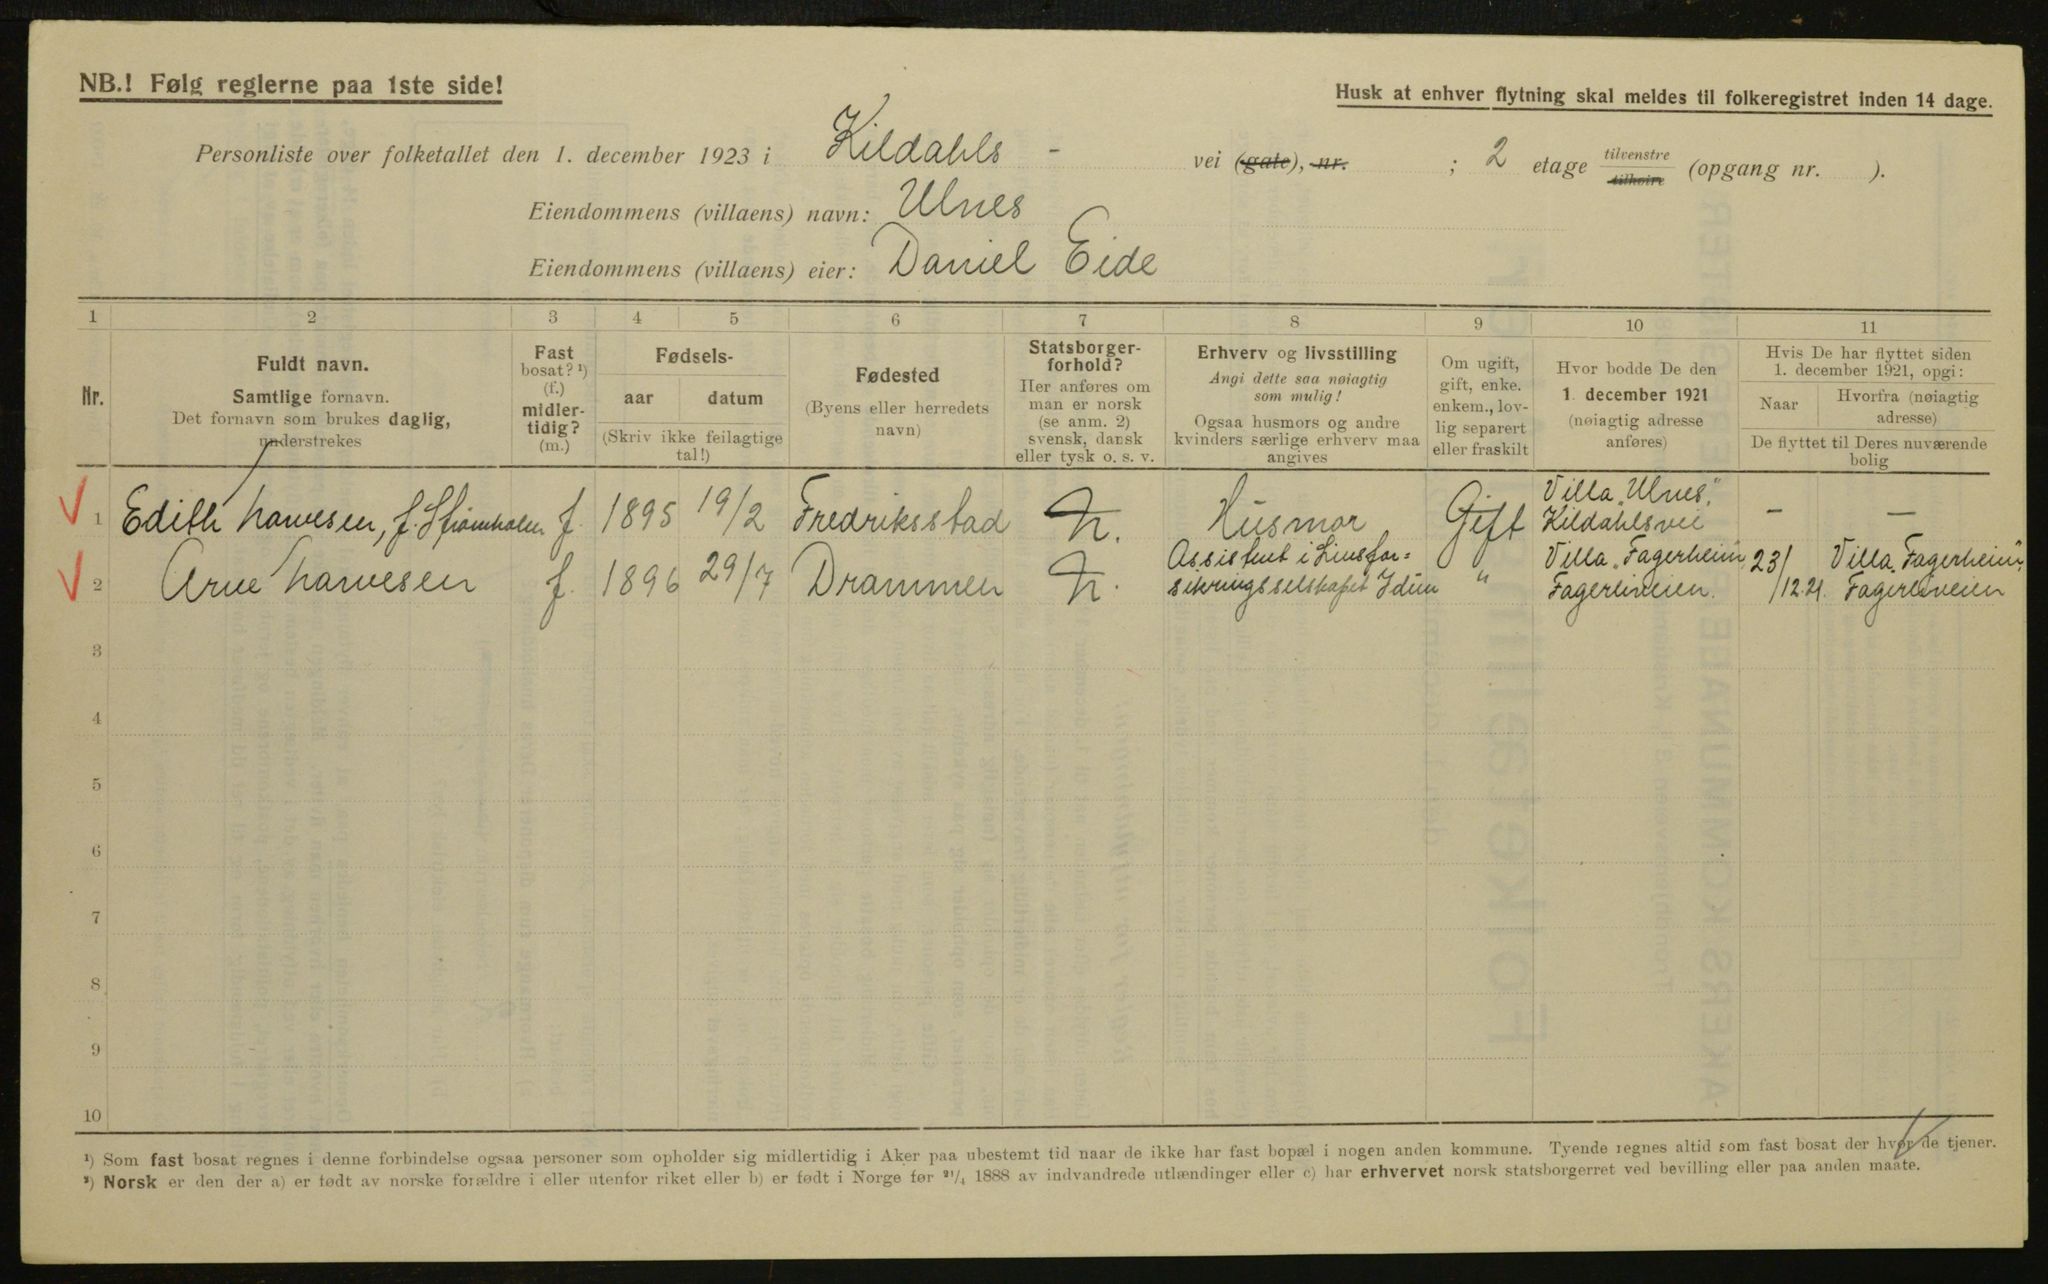 NB.! Følg reglerne paa 1ste side!
Husk at enhver flytning skal meldes til folkeregistret inden 14 dage.
Personliste over folketallet den 1. december 1923 i Kildahls - vei (gate), nr. ; 2 etage tilvenstre tilhøire (opgang nr. ).
Eiendommens (villaens) navn: Ulnes
Eiendommens (villaens) eier: Daniel Eide
1 2 3 4 5 6 7 8 9 10 11
Nr.
Fuldt navn.
Samtlige fornavn.
Det fornavn som brukes daglig,
understrekes
Fast
bosat? ¹)
(f.)
midler-
tidig?
(m.)
Fødsels-
aar datum
(Skriv ikke feilagtige
tal!)
Fødested
(Byens eller herredets
navn)
Statsborger-
forhold?
Her anføres om
man er norsk
(se anm. 2)
svensk, dansk
eller tysk o. s. v.
Erhverv og livsstilling
Angi dette saa nøiagtig
som mulig!
Ogsaa husmors og andre
kvinders særlige erhverv maa
angives
Om ugift,
gift, enke.
enkem., lov-
lig separert
eller fraskilt
Hvor bodde De den
1. december 1921
(nøiagtig adresse
anføres)
Hvis De har flyttet siden
1. december 1921, opgi:
Naar
Hvorfra (nøiagtig
adresse)
De flyttet til Deres nuværende
bolig
1 Edith Narvesen, f. Strømholm f. 1895 19/2 Fredriksstad N. Husmor Gift Villa "Ulnes", Kildahlsvei — —
2 Arne Narvesen f. 1896 29/7 Drammen N. Assistent i Livsfor= sikringsselskapet Idun " Villa "Fagerheim" Fagerliveien. 23/ /12.21. Villa "Fagerheim" Fagerliveien
3
4
5
6
7
8
9
10
¹) Som fast bosat regnes i denne forbindelse ogsaa personer som opholder sig midlertidig i Aker paa ubestemt tid naar de ikke har fast bopæl i nogen anden kommune. Tyende regnes altid som fast bosat der hvor de tjener.
²) Norsk er den der a) er født av norske forældre i eller utenfor riket eller b) er født i Norge før ²¹/₄ 1888 av indvandrede utlændinger eller c) har erhvervet norsk statsborgerret ved bevilling eller paa anden maate.